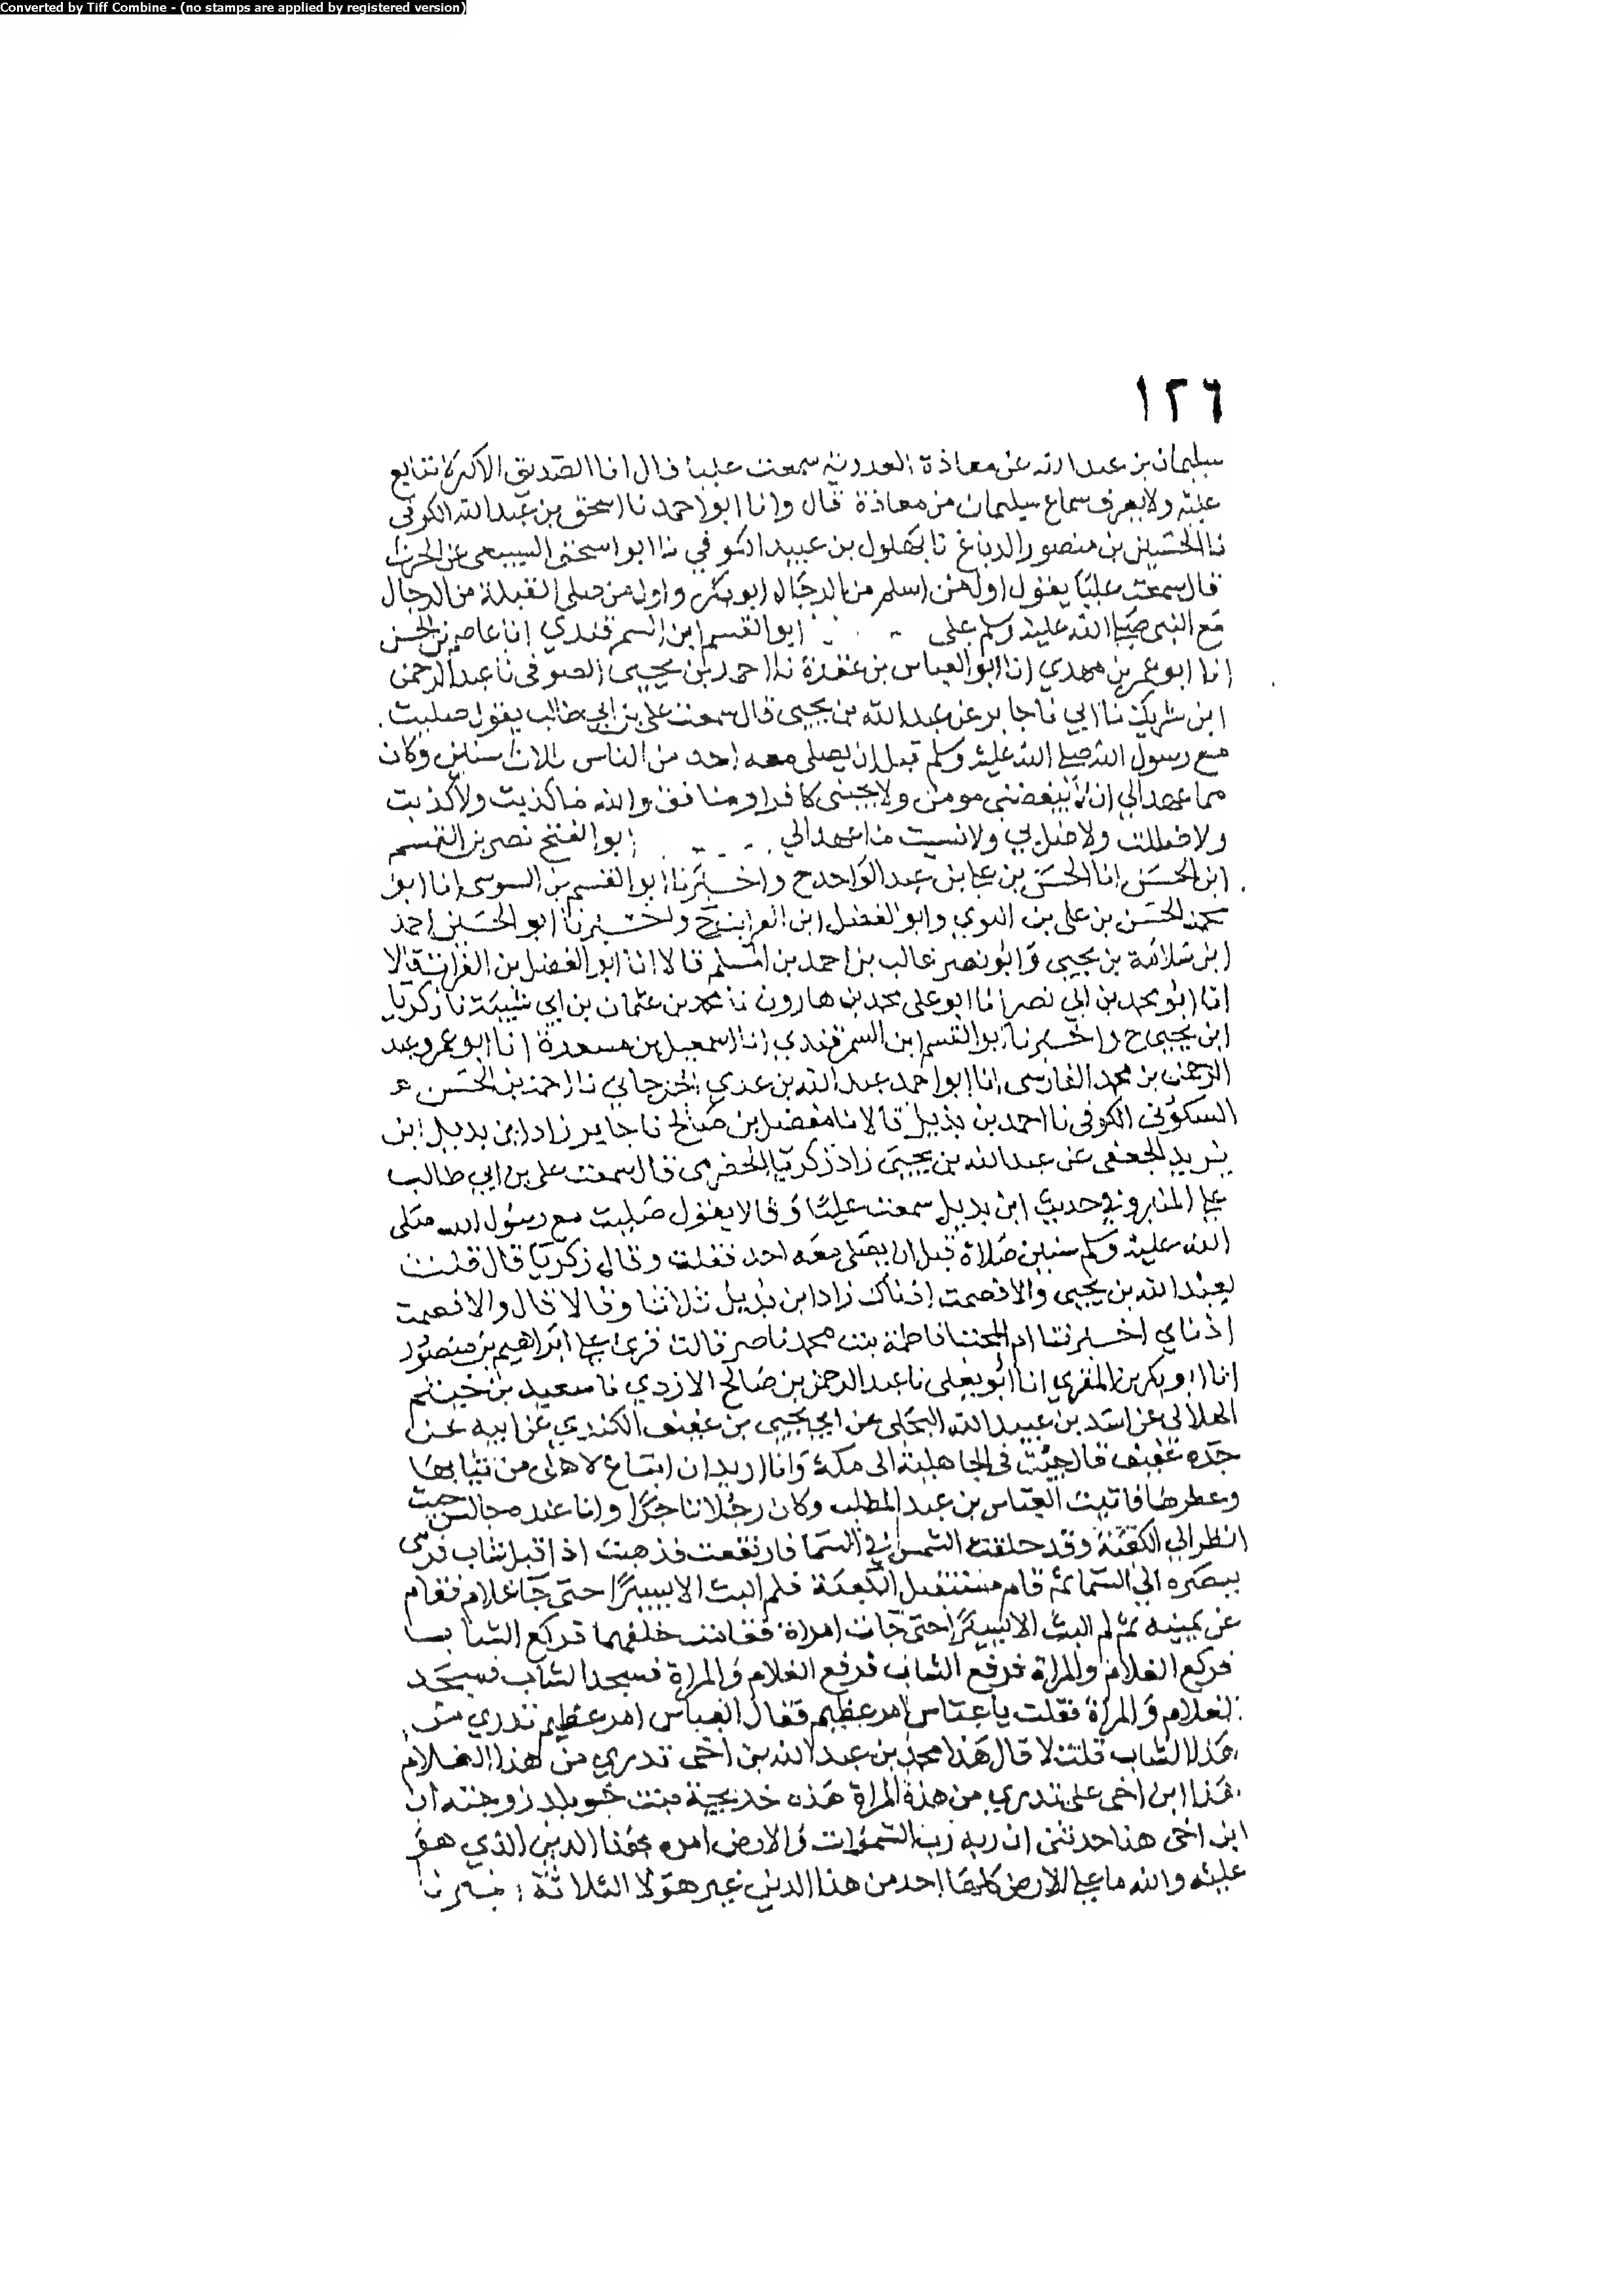 Converted by Tiff Combine - (no stamps are applied by registered version)
١٢٦
سليمان بن عبد الله عن معاذة العدوية سمعت عليا قال انا الصديق الاكبر لا يتابع
عليه ولا يعرف سماع سليمان من معاذة قال وانا ابو احمد نا اسحق بن عبد الله الكوفي
نا الحسين بن منصور الدباغ نا بهلول بن عبيد الكوفي نا ابو اسحق السبيعي عن الحرث
قال سمعت عليا يقول اول من اسلم من الرجال ابو بكر واول من صلى القبلة من الرجال
مع النبي صلى الله عليه وسلم على ابو القسم ابن السمرقندي انا عاصم بن الحسن
انا ابو عمر بن مهدي انا ابو العباس بن عقدة نا احمد بن يحيى الصوفي نا عبد الرحمن
ابن شريك نا ابي نا جابر عن عبد الله بن يحيى قال سمعت علي بن ابي طالب يقول صليت
مع رسول الله صلى الله عليه وسلم قبل ان يصلي معه احد من الناس ثلاث سنين وكان
مما عهد الي ان لا يبغضني مومن ولا يحبني كافر او منافق والله ما كذبت ولا كذبت
ولا ضللت ولا ضل بي ولا نسيت ما عهد الي ابو الفتح نصر بن القسم
ابن الحسن انا الحسن بن علي بن عبد الواحد ح واخبرنا ابو القسم بن السوسي انا ابو
محمد الحسن بن علي بن البري وابو الفضل ابن الفرات ح واخبرنا ابو الحسين احمد
ابن سلامة بن يحيى وابو نصر غالب بن احمد بن المسلم قالا انا ابو الفضل بن الفرات قالا
انا ابو محمد بن ابي نصر انا ابو علي محمد بن هارون نا محمد بن عثمان بن ابي شيبة نا زكريا
ابن يحيى ح واخبرنا ابو القسم ابن السمرقندي انا اسمعيل بن مسعدة انا ابو عمرو عبد
الرحمن بن محمد الفارسي انا ابو احمد عبد الله بن عدي الجرجاني نا احمد بن الحسن
السكوني الكوفي نا احمد بن بديل قالا نا مفضل بن صالح نا جابر زاد ابن بديل ابن
يزيد الجعفي عن عبد الله بن يحيى زاد زكريا الحضرمي قال سمعت علي بن ابي طالب
على المنابر وفي حديث ابن بديل سمعت عليا وقالا يقول صليت مع رسول الله صلى
الله عليه وسلم سنين صلاة قبل ان يصلي معه احد فقلت وقال زكريا قال قلت
لعبد الله بن يحيى والا فصمت اذناك زاد ابن بديل ثلاثا وقالا قال والا فصمت
اذناي اخبرتنا ام المجتبا فاطمة بنت محمد ناصر قالت قرئ على ابراهيم بن منصور
انا ابو بكر بن المقري انا ابو يعلى نا عبد الرحمن بن صالح الازدي نا سعيد بن خيثم
الهلالي عن اسد بن عبيد الله البجلي عن ابي يحيى بن عفيف الكندي عن ابيه عن
جده عفيف قال جئت في الجاهلية الى مكة وانا اريد ان ابتاع لاهلي من ثيابها
وعطرها فاتيت العباس بن عبد المطلب وكان رجلا تاجرا وانا عنده جالس حيث
انظر الي الكعبة وقد حلقت الشمس في السما فارتفعت فذهبت اذ اقبل شاب فرمى
ببصره الي السما ثم قام مستقبل الكعبة فلم البث الا يسيرا حتى جا غلام فقام
عن يمينه ثم لم البث الا يسيرا حتى جات امراة فقامت خلفهما فركع الشاب
فركع الغلام والمراة فرفع الشاب فرفع الغلام والمراة فسجد الشاب فسجد
الغلام والمراة فقلت يا عباس امر عظيم فقال العباس امر عظيم تدري من
هذا الشاب قلت لا قال هذا محمد بن عبد الله بن اخي تدري من هذا الغلام
هذا ابن اخي علي تدري من هذه المراة هذه خديجة بنت خويلد زوجته ان
ابن اخي هذا حدثني ان ربه رب السموات والارض امره بهذا الدين الذي هو
عليه والله ما على الارض كلها احد من هذا الدين غير هولا الثلاثة اخبرنا